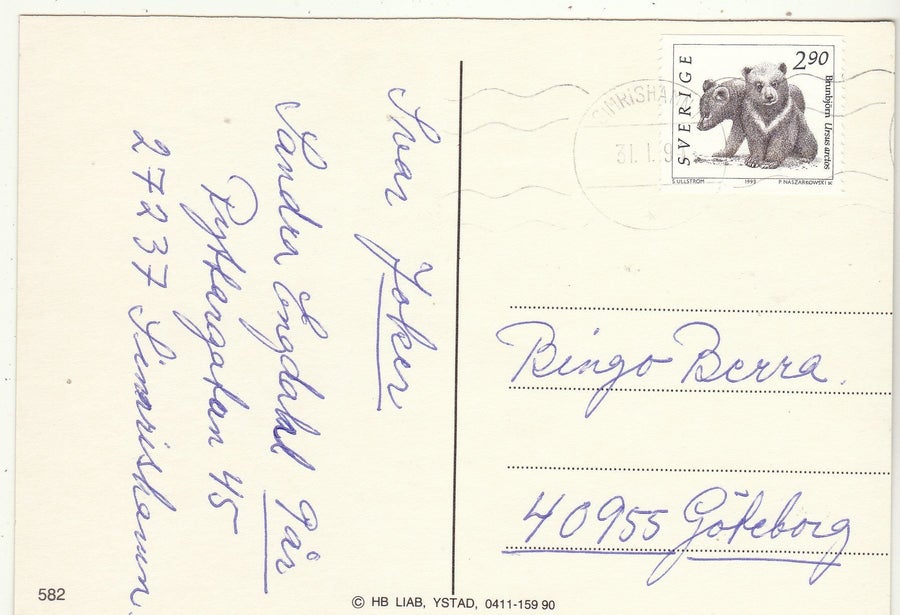 Svar Joker
Sandra Engdahl Pär
Ryttargatan 45
27237 Simrishamn.
SVERIGE
2 90
Brunbjörn Ursus arctos
S ULLSTRÖM 1993 P NASZARKOWSKI SC
SIMRISHA
31. 1. 9
Bingo Berra.
40955 Göteborg
582
© HB LIAB, YSTAD, 0411-159 90